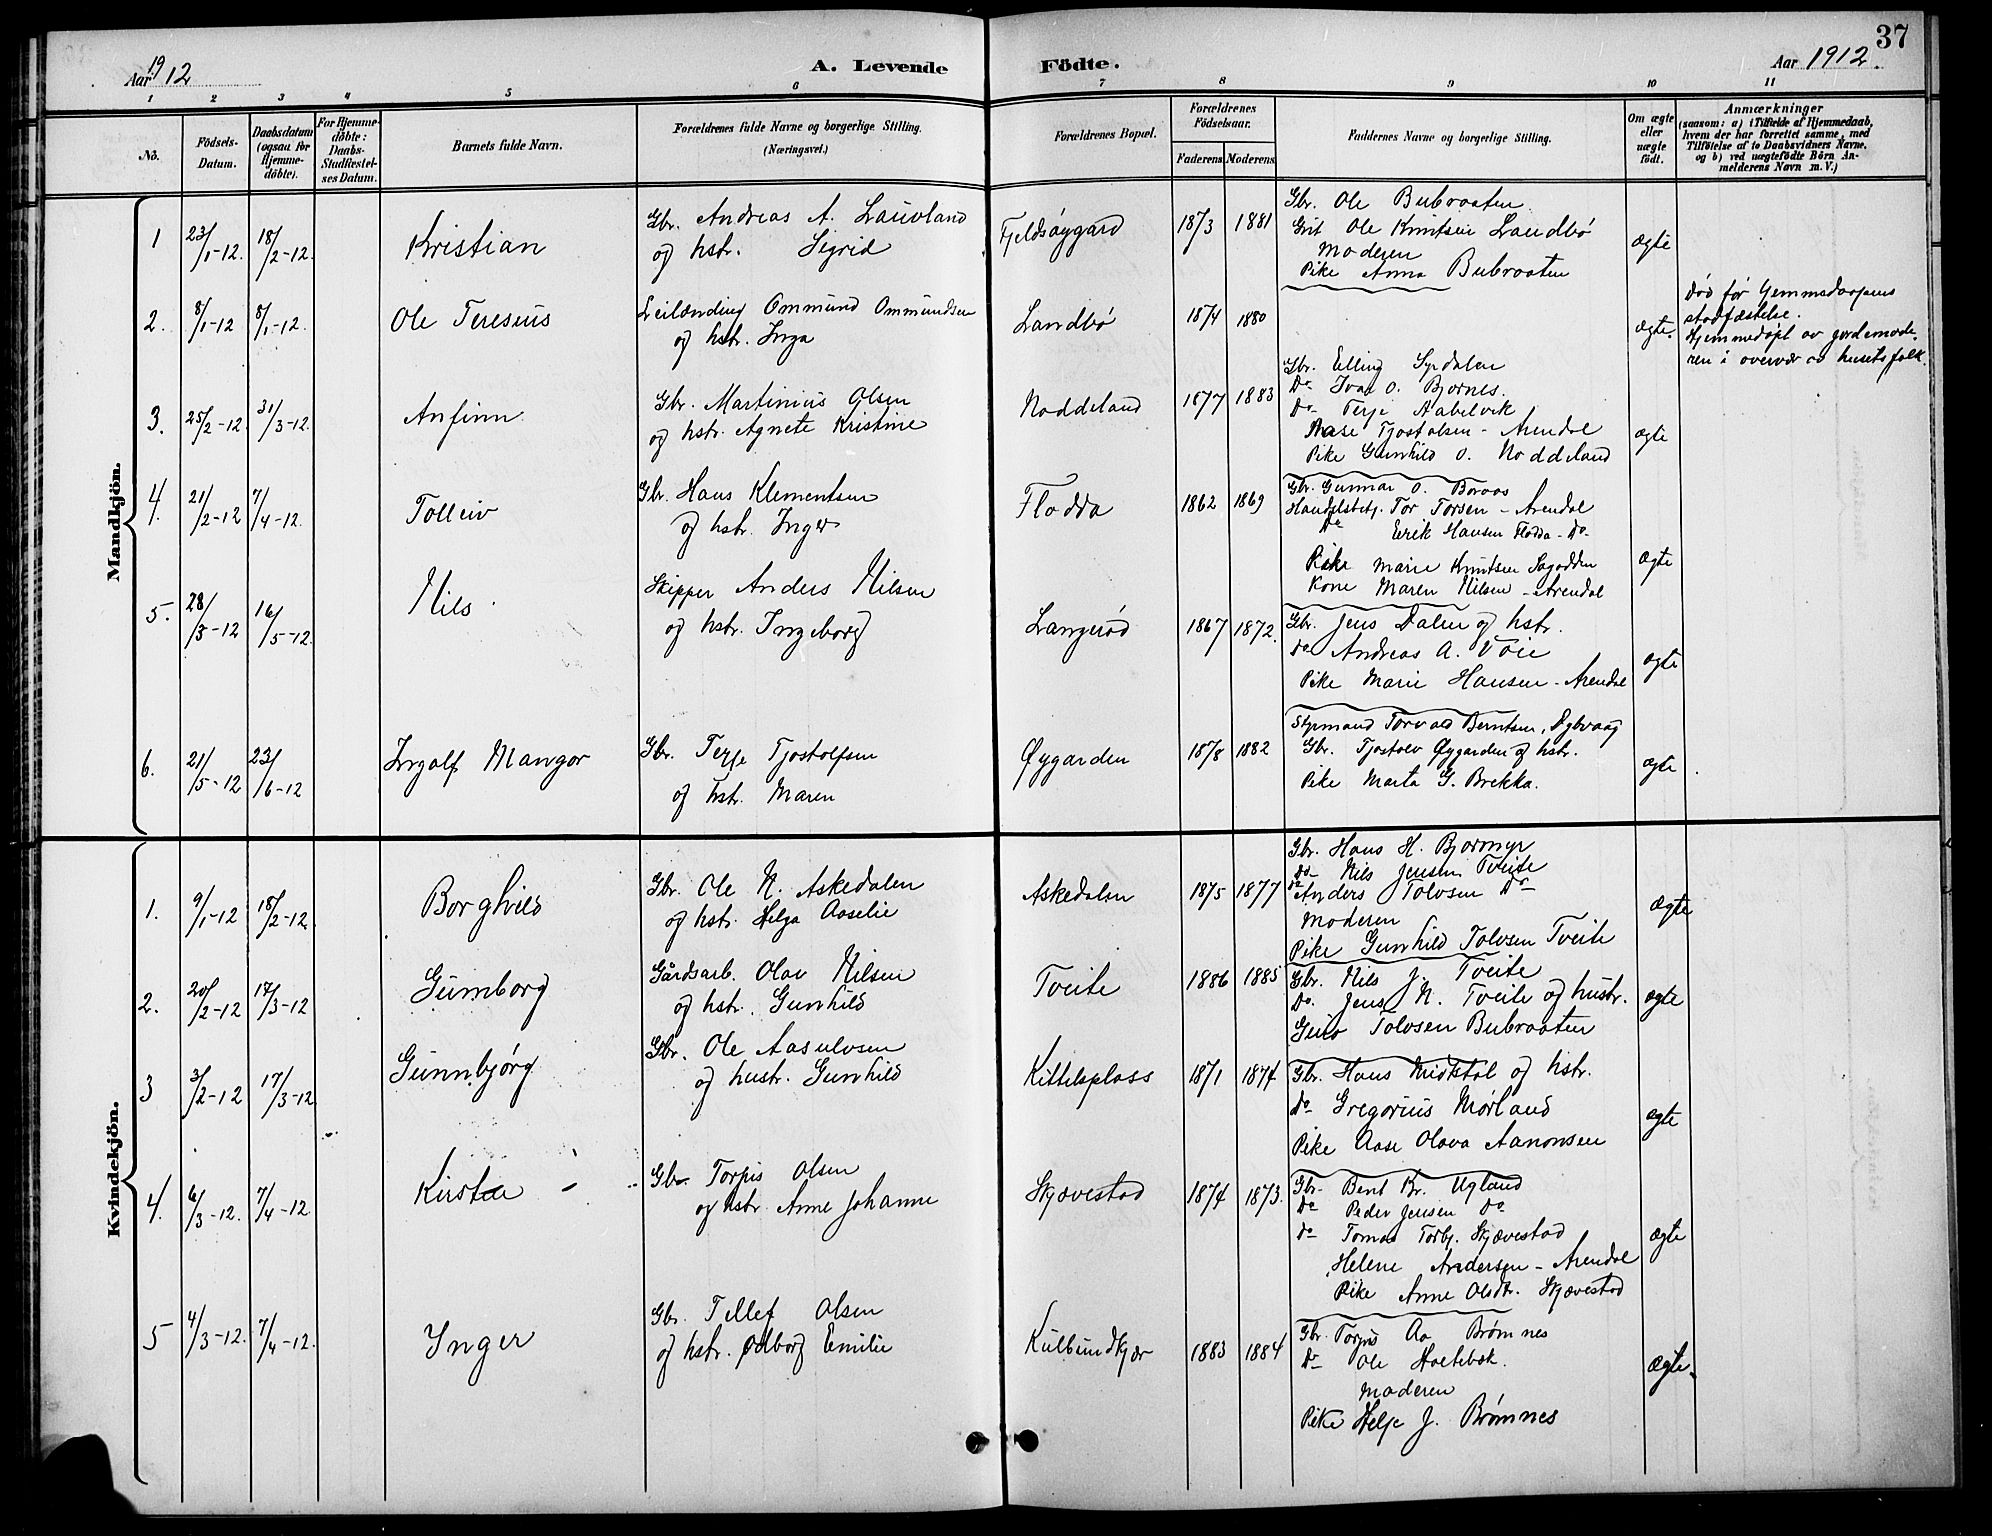 37
Aar 1912
A. Levende Födte.
Aar 1912.
1 2 3 4 5 6 7 8 9 10 11
No.
Födsels-
Datum.
Daabsdatum
(ogsaa for
Hjemme-
döbte).
For Hjemme-
döbte:
Daabs-
Stadfæstel-
ses Datum.
Barnets fulde Navn.
Forældrenes fulde Navne og borgerlige Stilling.
(Næringsvei.)
Forældrenes Bopæl.
Forældrenes
Födselsaar.
Faderens
Moderens
Faddernes Navne og borgerlige Stilling.
Om ægte
eller
uægte
födt.
Anmærkninger
(saasom: a) i Tilfælde af Hjemmedaab,
hvem der har forrettet samme, med
Tilföielse af to Daabsvidners Navne,
og b) ved uægtefödte Börn An-
melderens Navn m. V.)
Mandkjön.
1 23/1-12. 18/2-12. Kristian
Gbr. Andreas A. Lauvland
og hstr. Sigrid
Fjeldsøygard 1873 1881
Gbr. Ole Bubraaten
Ole Knutsen Landbø
Moderen
Pike Anna Bubraaten
ægte
2. 8/1-12 8/1-12. Ole Teresius
Leilænding Ommund Ommundsen
og hstr. Inga
Landbø 1874 1880
ægte.
død før hjemmedaapens
stadfæstelse.
Hjemmedøpt av jordemode-
ren i overvær av husets folk.
3. 25/2-12 31/3-12. Anfinn
Gbr. Martinius Olsen
og hstr. Agnete Kristine
Noddeland 1877 1883
Gbr. Elling Syrdalen
Do Ivar O. Bjornes.
Do Terje Aabelvik
Aase Tjostolsen - Arendal
Pike Gunhild O. Noddeland
ægte
4. 21/2-12 7/4-12. Tolleiv
Gbr. Hans Klementsen
og hstr. Inger
Flodda 1862 1869
Gbr. Gunnar O. Boraas
Handelsbetj. Tor Torsen - Arendal
Do Eerik Hansen Flodda - Do
Pike Marie Knutsen Sagodden
Kone Maren Nilsen - Arendal
ægte
5. 28/3-12 16/5-12. Nils
Skipper Anders Nilsen
og hstr. Ingeborg
Langerød 1867 1872.
Gbr. Jens Dalen og hstr.
Do Andreas A. Vöie
Pike Marie Hansen - Arendal
ægte
6. 21/5-12 23/6-12 Ingolf Mangor
Gbr. Terje Tjostolfsen
og hstr. Maren
Øygarden 1878 1882
Styrmand Torvald Berntsen, Dybvaag
Gbr. Tjostolv Øygarden og hstr.
Pike Marta G. Brekka.
ægte
Kvindekjön.
1. 9/1-12 18/2-12. Borghild
Gbr. Ole N. Askedalen
og hstr. Helga Aaselie
Askedalen 1875 1877
Gbr. Hans H. Bjormyr
Do Nils Jensen Tveite
Do Anders Tolvsen Do
Moderen
Pike Gunhild Tolvsen Tveite
ægte
2. 20/2-12 17/3-12 Gunborg
Gårdsarb. Olav Nilsen
og hstr. Gunhild
Tveite 1886 1885
Gbr. Nils J. Tveite
Do. Jens N. Tveite og hustr.
Tolvsen Bubraaten
ægte
3 3/2-12 17/3-12 Gunnbjørg
Gbr. Ole Aasulvsen
og hustr. Gunhild
Kittelsplass 1871 1874
Gbr. Hans Midtstøl og hstr.
Do Gregorius Mørland
Pike Aase Olava Aanonsen
ægte
4. 6/3-12. 7/4-12 Kirsten
Gbr. Torjus Olsen
og hstr. Anne Johanne
Skjævestad 1874 1873.
Gbr. Bent Br. Ugland
Do Peder Jensen Do
Do Tomas Torbj. Skjævestad
Helene Andersen - Arendal
Pike Anne Olsdtr. Skjævestad
ægte
5 4/3-12. 7/4-12. Inger
Gbr. Tellef Olsen
og hstr. Odborg Emilie
Kulbundkjær 1883 1884
Gbr. Torjus Aa Brømnes
Do Ole Holtebek.
Moderen
Pike Helje J. Brømnes
ægte.